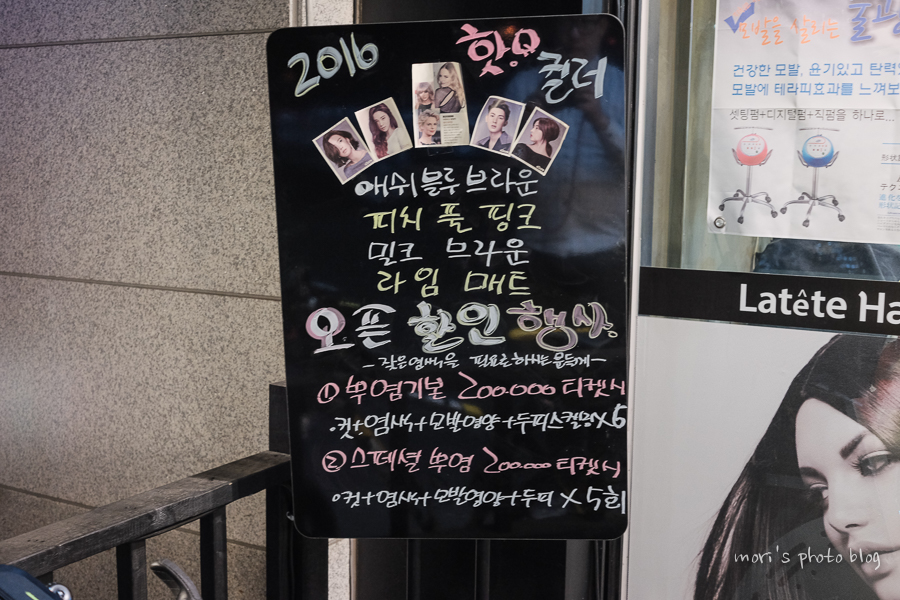 2016 핫! 컬러
애쉬블루브라운
피치 풀 핑크
밀크 브라운
라임 매트
오픈 할인 행사
- 잦은염색을 필요로하시는분들께 -
① 뿌염기본 200.000 티켓시
·컷+염색+모발영양+두피스켈링X5
② 스페셜 뿌염 200.000 티켓시
·컷+염색+모발영양+두피 X 5회
모발을 살리는
건강한 모발, 윤기있고 탄력
모발에 테라피효과를 느껴보
셋팅펌+디지털펌+직펌을 하나로...
形状
テク
Latête Ha
mori's photo blog